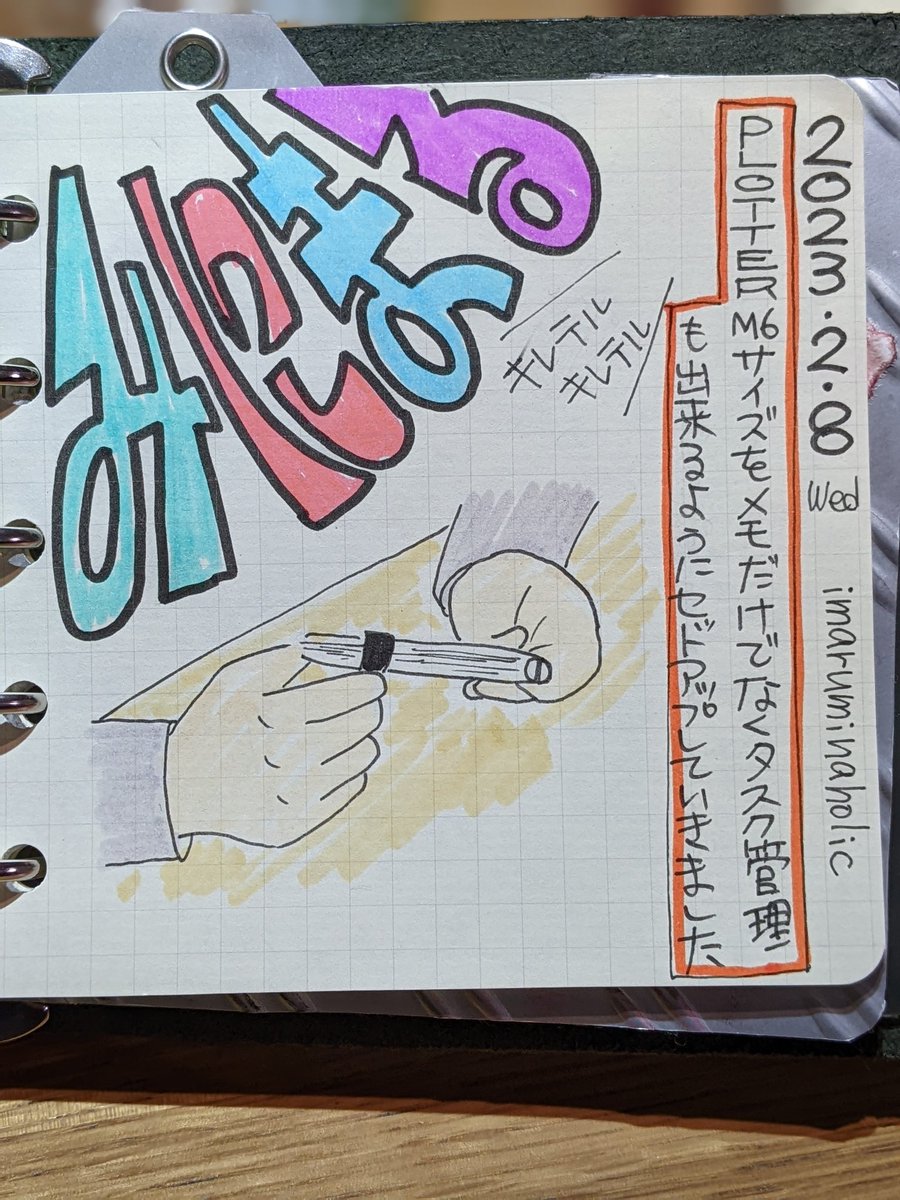 2023.2.8 Wed imaruminaholic
PLOTTER M6サイズをメモだけでなくタスク管理
も出来るようにセットアップしていきました
キレテル
キレテル
みにまる